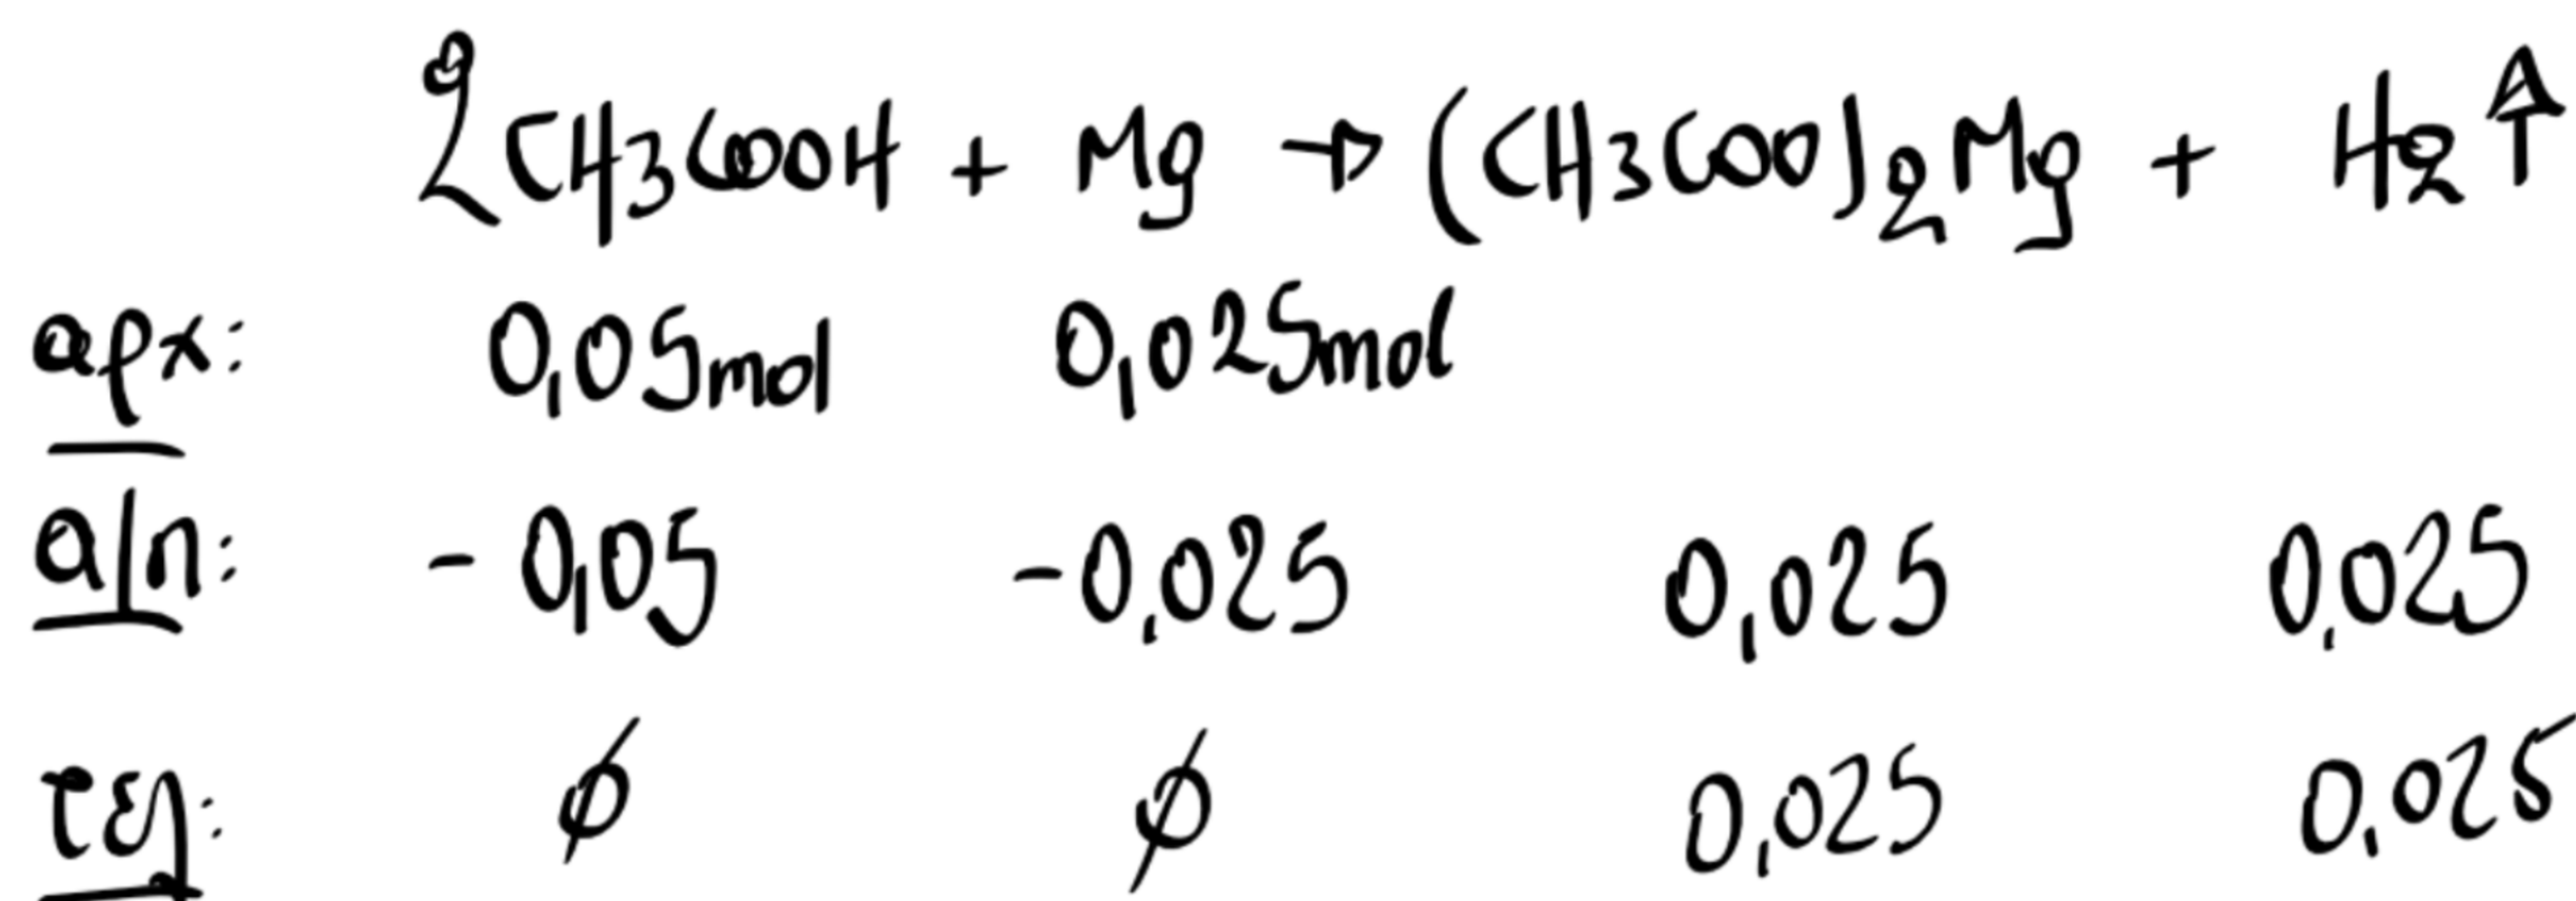 2CH3COOH + Mg → (CH3COO)2Mg + H2↑
αρχ: 0,05mol 0,025mol
α|π: - 0,05 - 0,025 0,025 0,025
τεη: ∅ ∅ 0,025 0,025